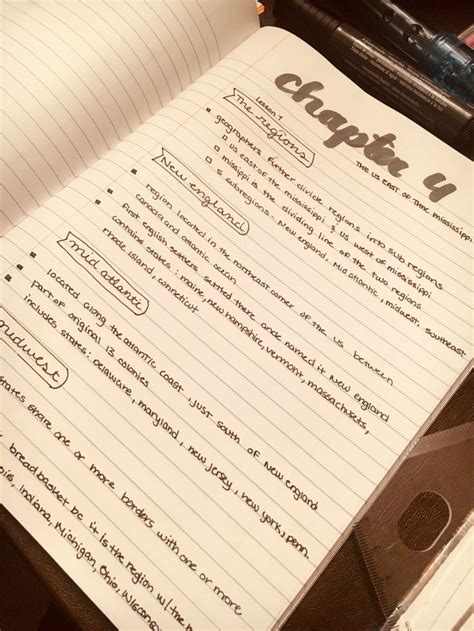 chapter 4
THE US EAST OF THE MISSISSIPPI
Lesson 1
The regions
geographers further divide regions into sub regions
us east of the mississippi & us west of mississippi
missippi is the dividing line of the two regions
5 subregions - New england, Mid atlantic, midwest, southeast
New england
region located in the northeast corner of the us between
canada and atlantic ocean
first english settlers settled there and named it New england
contains states: maine, new hampshire, vermont, massachusetts,
rhode island, connecticut
mid atlantic
located along the atlantic coast, just south of New england
part of original 13 colonies
includes states: delaware, maryland, new jersey, new york, penn.
midwest
states share one or more borders with one or more
breadbasket bc it is the region w/ the
Indiana, Michigan, Ohio, Wiscons